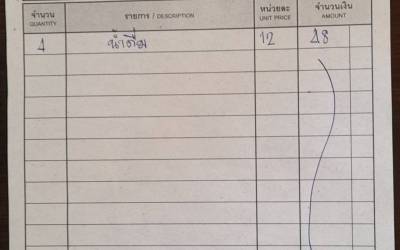 จำนวน รายการ / DESCRIPTION หน่วยละ จำนวนเงิน
QUANTITY UNIT PRICE AMOUNT
4 น้ำดื่ม 12 48